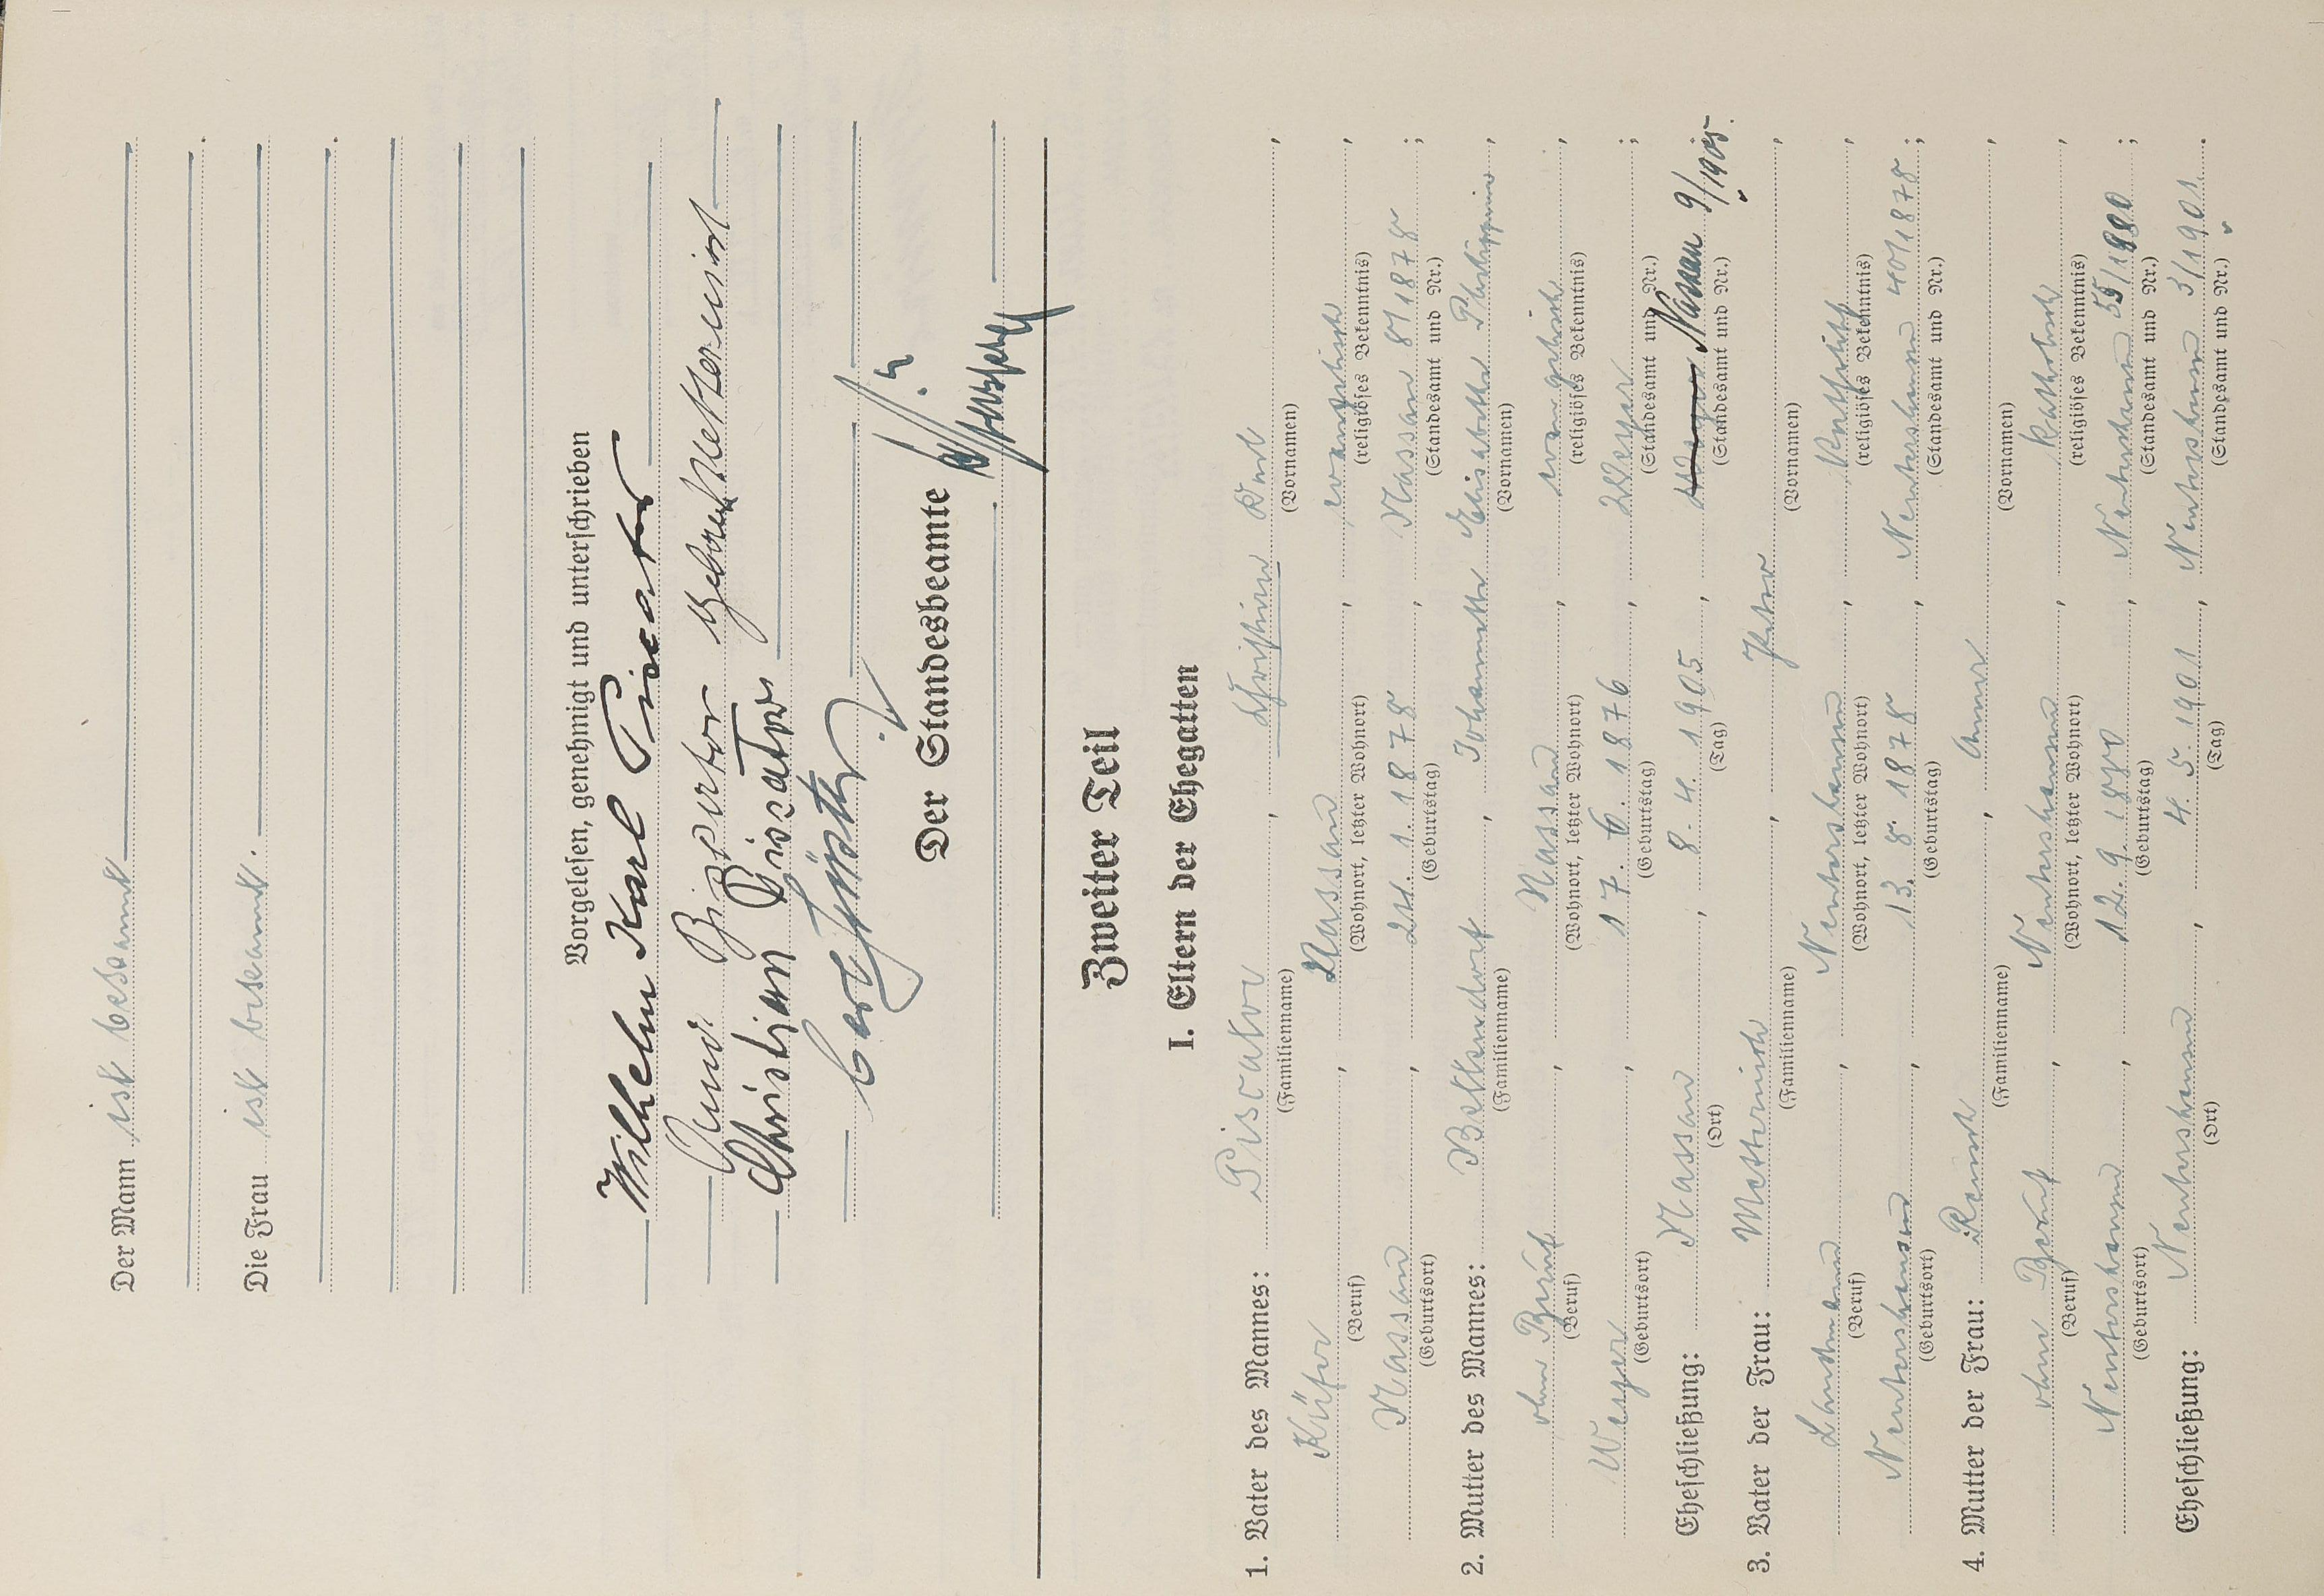 Der Mann ist bekannt
Die Frau ist bekannt.
Vorgelesen, genehmigt und unterschrieben
Wilhelm Karl Piscator
Piscator geborene Metternich
Christian Piscator
Carl
Der Standesbeamte
Zweiter Teil
I. Eltern der Ehegatten
1. Vater des Mannes: Piscator, Christian Karl,
(Familienname) (Vornamen)
Küfer, Nassau, evangelisch,
(Beruf) (Wohnort, letzter Wohnort) (religiöses Bekenntnis)
Nassau, 24. 1. 1878, Nassau 8/1878;
(Geburtsort) (Geburtstag) (Standesamt und Nr.)
2. Mutter des Mannes: Bettendorf, Johannette Elisabetha Philippine,
(Familienname) (Vornamen)
ohne Beruf, Nassau, evangelisch,
(Beruf) (Wohnort, letzter Wohnort) (religiöses Bekenntnis)
Weyer, 17. 6. 1876, Weyer;
(Geburtsort) (Geburtstag) (Standesamt und Nr.)
Eheschließung: Nassau, 8. 4. 1905, Nassau 9/1905.
(Ort) (Tag) (Standesamt und Nr.)
3. Vater der Frau: Metternich, Peter,
(Familienname) (Vornamen)
Landmann, Nentershausen, katholisch,
(Beruf) (Wohnort, letzter Wohnort) (religiöses Bekenntnis)
Nentershausen, 13. 8. 1878, Nentershausen 40/1878;
(Geburtsort) (Geburtstag) (Standesamt und Nr.)
4. Mutter der Frau: Anna,
(Familienname) (Vornamen)
ohne Beruf, Nentershausen, katholisch,
(Beruf) (Wohnort, letzter Wohnort) (religiöses Bekenntnis)
Nentershausen, 12. 9. 1880, Nentershausen 55/1880;
(Geburtsort) (Geburtstag) (Standesamt und Nr.)
Eheschließung: Nentershausen, 4. 5. 1901, Nentershausen 3/1901.
(Ort) (Tag) (Standesamt und Nr.)